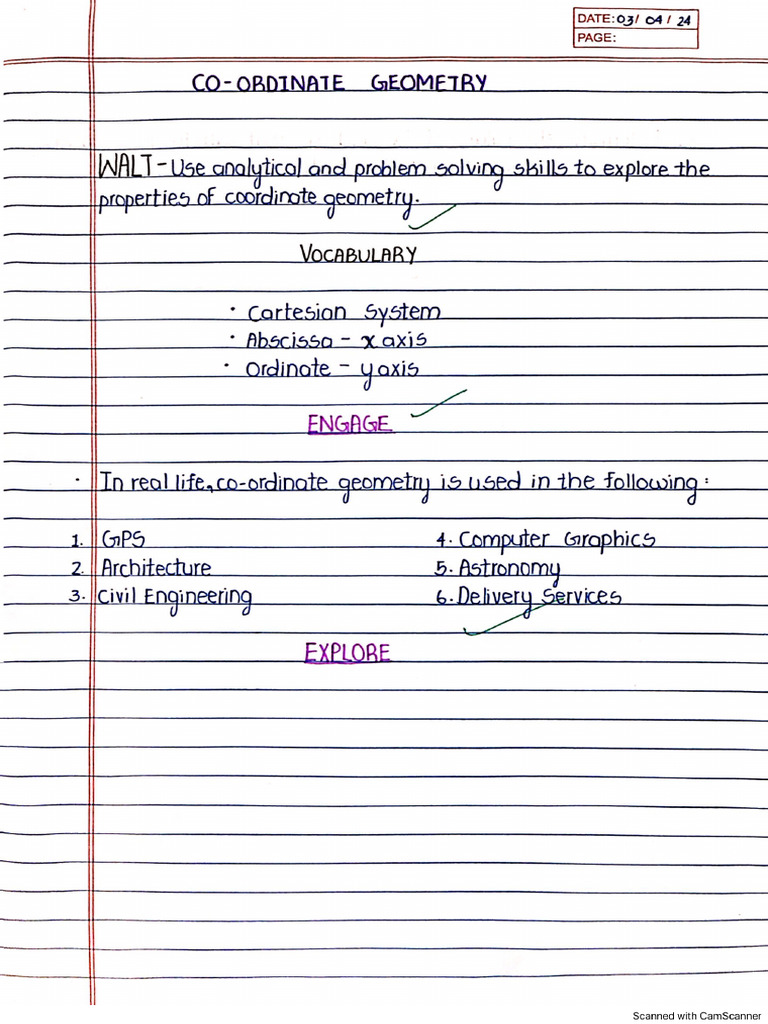 DATE: 03/ 04 / 24
PAGE:
CO-ORDINATE GEOMETRY
WALT - Use analytical and problem solving skills to explore the
properties of coordinate geometry.
VOCABULARY
• Cartesian System
• Abscissa - x axis
• Ordinate - y axis
ENGAGE
• In real life, co-ordinate geometry is used in the following:
1. GPS
2. Architecture
3. Civil Engineering
4. Computer Graphics
5. Astronomy
6. Delivery Services
EXPLORE
Scanned with CamScanner